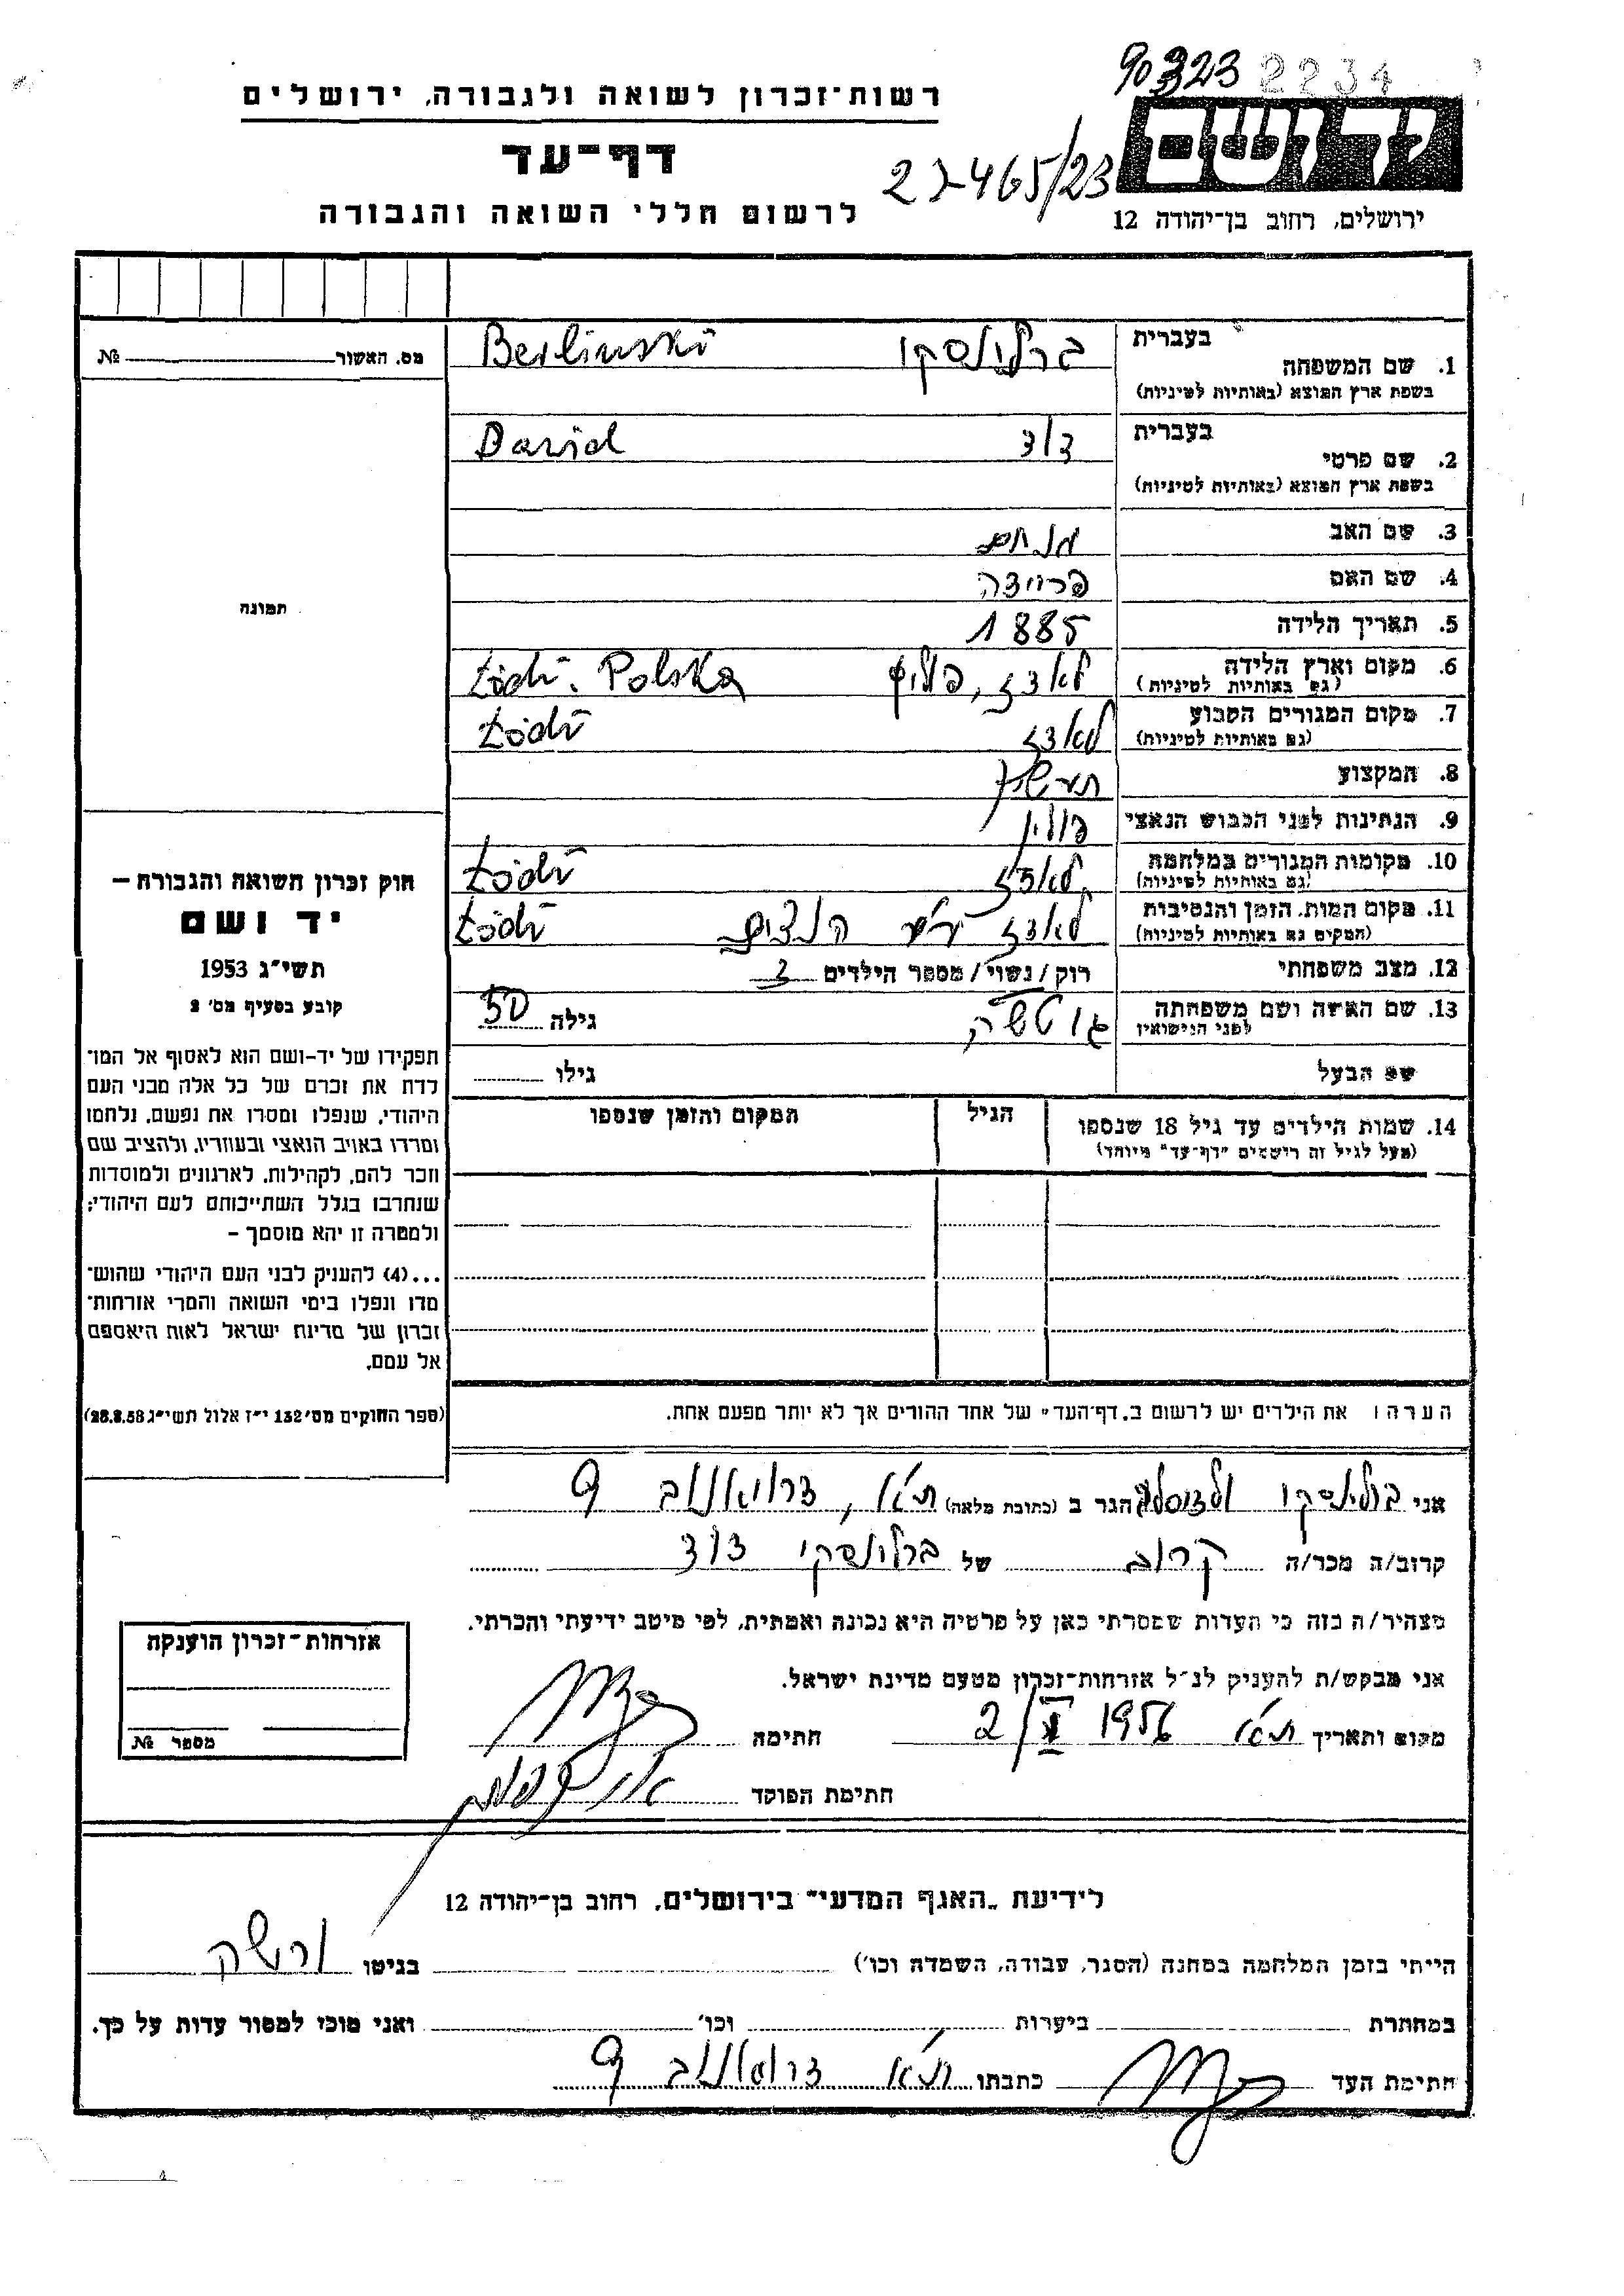 90323 2234
רשות-זכרון לשואה ולגבורה, ירושלים
דף-עד
27-465/23
יד ושם
לרשום חללי השואה והגבורה
ירושלים, רחוב בן-יהודה 12
מס. האשור № 
בעברית
1. שם המשפחה ברלינסקי Berlinski
בשפת ארץ המוצא (באותיות לטיניות)
בעברית
2. שם פרטי דוד Dawid
בשפת ארץ המוצא (באותיות לטיניות)
3. שם האב מנחם
4. שם האם
תמונה
5. תאריך הלידה 1885
6. מקום וארץ הלידה לאדז, פולין Łódź. Polska
(גם באותיות לטיניות)
7. מקום המגורים הקבוע לאדז Łódź
(גם באותיות לטיניות)
8. המקצוע תעשין
9. הנתינות לפני הכבוש הנאצי פולין
10. מקומות המגורים במלחמה לאדז Łódź
(גם באותיות לטיניות)
11. מקום המות, הזמן והנסיבות לאדז ע"י הנצים Łódź
(המקום גם באותיות לטיניות)
12. מצב משפחתי רוק/נשוי/מספר הילדים 3
13. שם האשה ושם משפחתה גוטשה גילה 50
לפני הנישואין
שם הבעל גילו
14. שמות הילדים עד גיל 18 שנספו הגיל המקום והזמן שנספו
(מעל לגיל זה רושמים "דף-עד" מיוחד)
חוק זכרון השואה והגבורה –
יד ושם
תשי"ג 1953
קובע בסעיף מס' 2
תפקידו של יד-ושם הוא לאסוף אל המו-
לדת את זכרם של כל אלה מבני העם
היהודי, שנפלו ומסרו את נפשם, נלחמו
ומרדו באויב הנאצי ובעוזריו, ולהציב שם
וזכר להם, לקהילות, לארגונים ולמוסדות
שנחרבו בגלל השתייכותם לעם היהודי;
ולמטרה זו יהא מוסמך –
...(4) להעניק לבני העם היהודי שהוש-
מדו ונפלו בימי השואה והמרי אזרחות-
זכרון של מדינת ישראל לאות היאספם
אל עמם.
(ספר החוקים מס' 132 י"ז אלול תשי"ג 28.8.53)
הערה: את הילדים יש לרשום ב"דף-העד" של אחד ההורים אך לא יותר מפעם אחת.
אני ברלינסקי הגר ב (כתובת מלאה) ת"א, דרויאנוב 9
קרוב/ה מכר/ה קרוב של ברלינסקי דוד
מצהיר/ה בזה כי העדות שמסרתי כאן על פרטיה היא נכונה ואמתית, לפי מיטב ידיעתי והכרתי.
אני מבקש/ת להעניק לנ"ל אזרחות-זכרון מטעם מדינת ישראל.
מקום ותאריך ת"א 1956 חתימה
חתימת הפוקד
אזרחות-זכרון הוענקה
מספר №
לידיעת "האגף המדעי" בירושלים, רחוב בן-יהודה 12
הייתי בזמן המלחמה במחנה (הסגר, עבודה, השמדה וכו') בגיטו ורשה
במחתרת ביערות וכו' ואני מוכן למסור עדות על כך.
חתימת העד כתבתו ת"א דרויאנוב 9